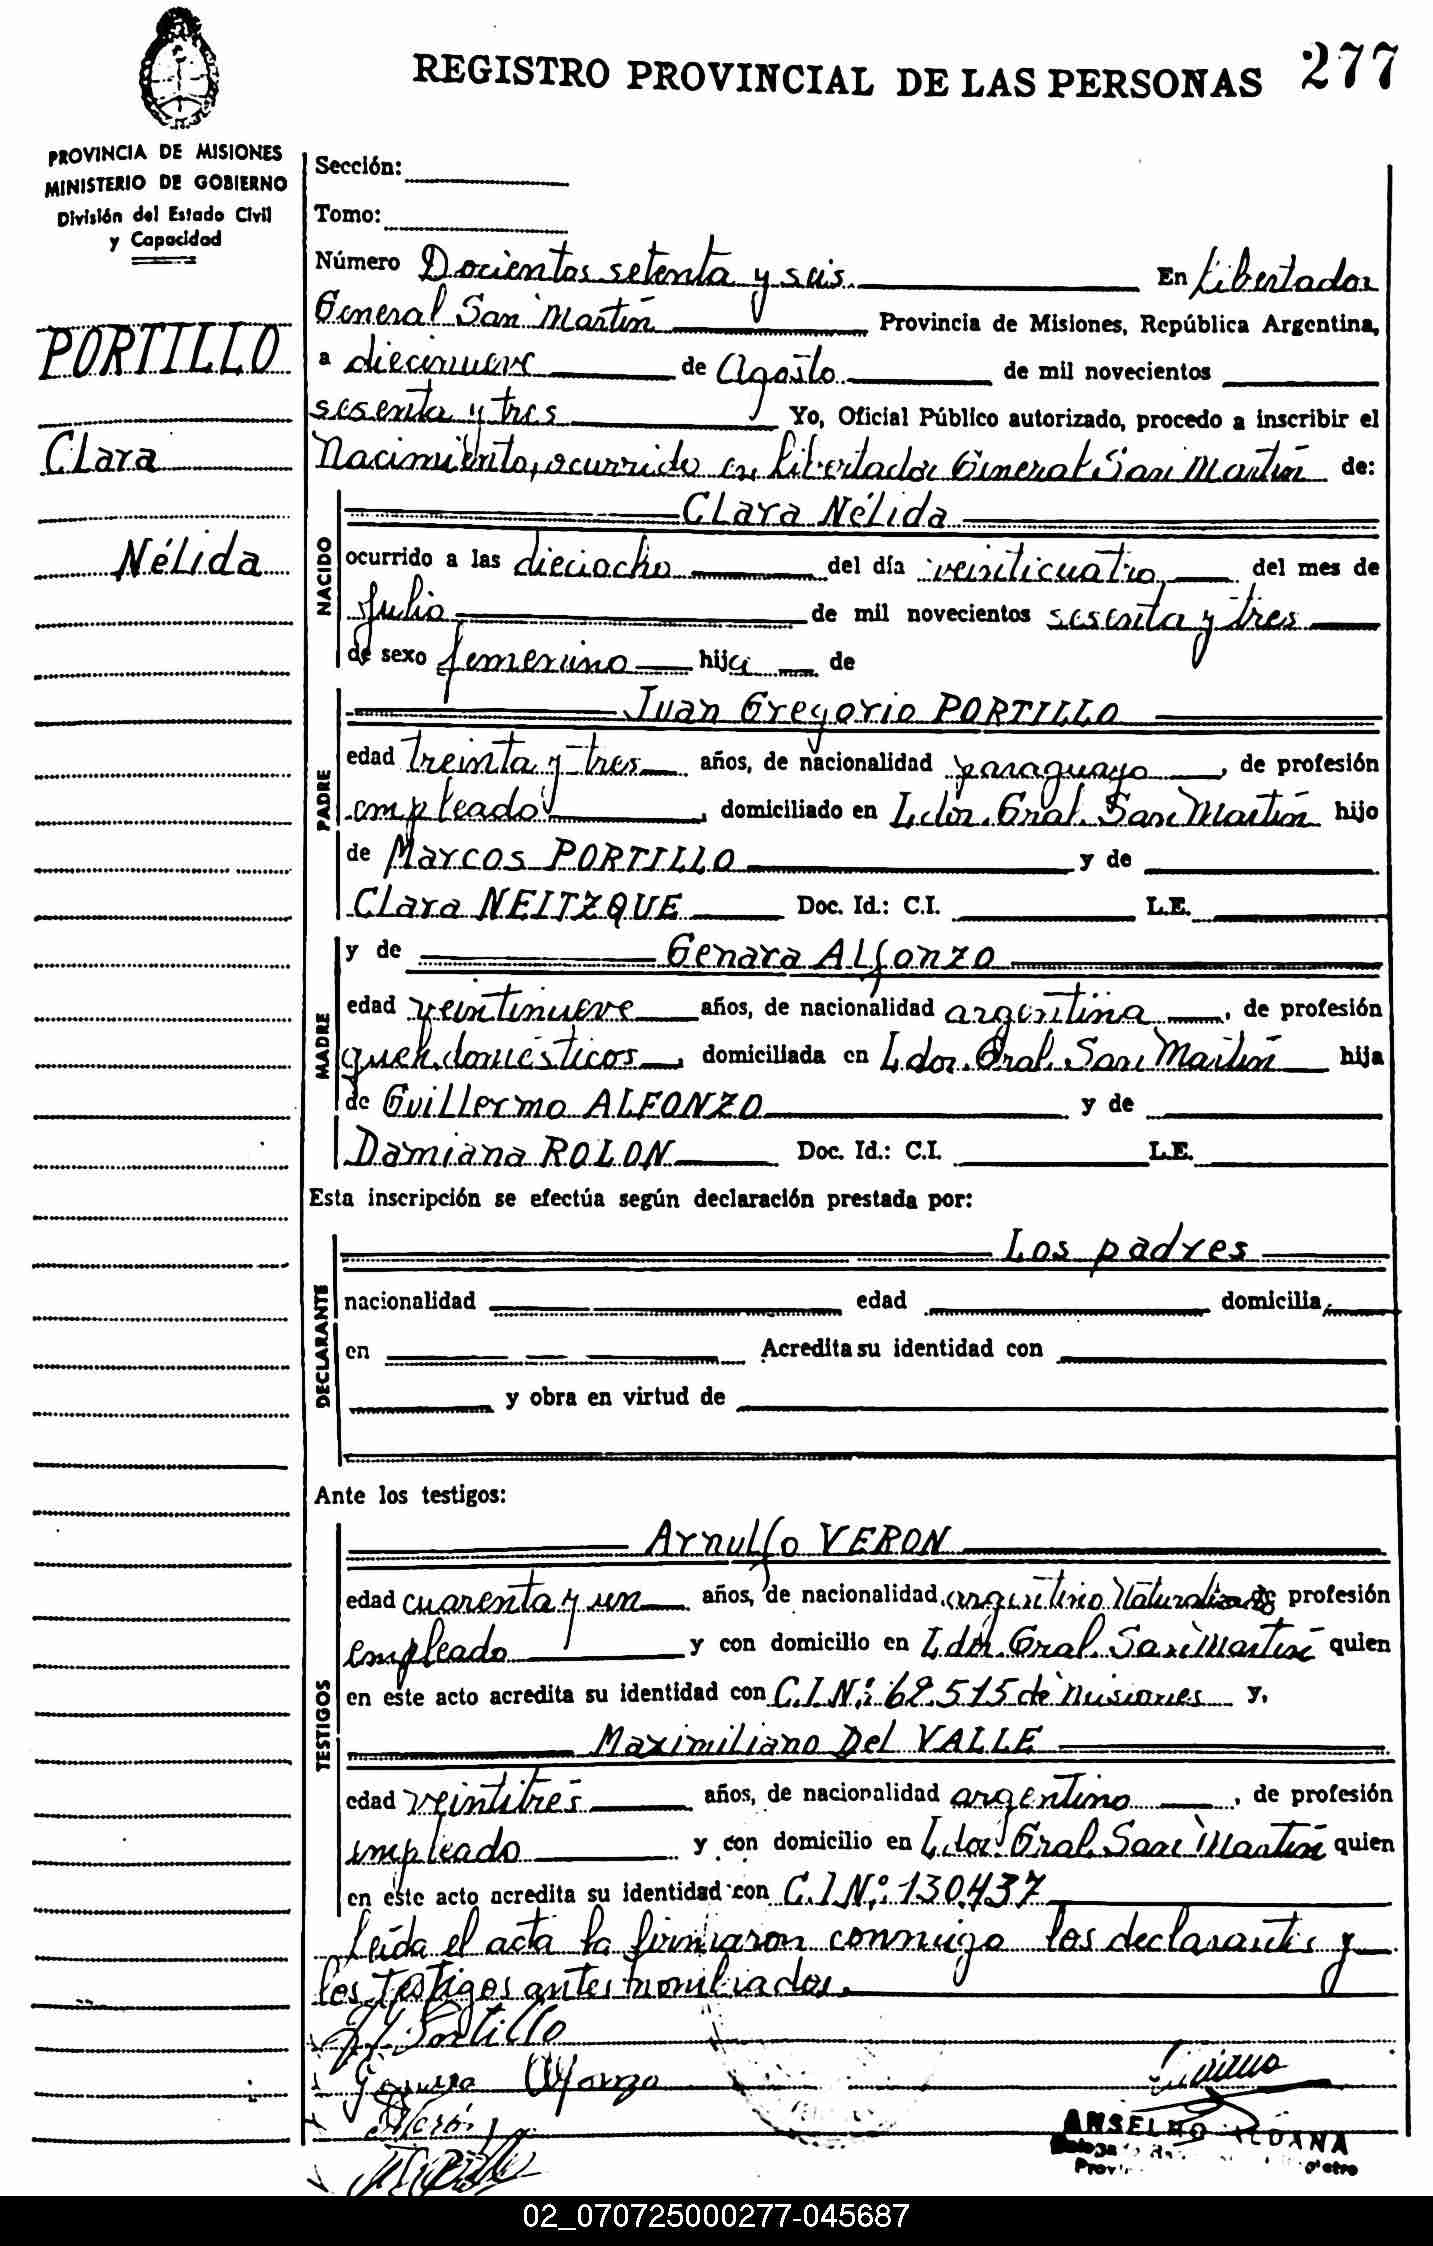 REGISTRO PROVINCIAL DE LAS PERSONAS 277
PROVINCIA DE MISIONES
MINISTERIO DE GOBIERNO
División del Estado Civil
y Capacidad
PORTILLO
Clara
Nélida
Sección:
Tomo:
Número Docientos setenta y seis En Libertador
General San Martín Provincia de Misiones, República Argentina,
a diecinueve de Agosto de mil novecientos
sesenta y tres Yo, Oficial Público autorizado, procedo a inscribir el
Nacimiento, ocurrido en Libertador General San Martín de:
NACIDO
Clara Nélida
ocurrido a las dieciocho del día veinticuatro del mes de
Julio de mil novecientos sesenta y tres
de sexo femenino hija de
PADRE
Juan Gregorio PORTILLO
edad treinta y tres años, de nacionalidad paraguayo, de profesión
empleado, domiciliado en Ldor. Gral. San Martín hijo
de Marcos PORTILLO y de
Clara NEITZQUE Doc. Id.: C.I. L.E.
MADRE
y de Genara ALfonzo
edad veintinueve años, de nacionalidad argentina, de profesión
queh. domésticos, domiciliada en Ldor. Gral. San Martín hija
de Guillermo ALFONZO y de
Damiana ROLON Doc. Id.: C.I. L.E.
Esta inscripción se efectúa según declaración prestada por:
DECLARANTE
Los padres
nacionalidad edad domicilia
en Acredita su identidad con
y obra en virtud de
Ante los testigos:
TESTIGOS
Arnulfo VERON
edad cuarenta y un años, de nacionalidad argentino de profesión
empleado y con domicilio en Ldor. Gral. San Martín quien
en este acto acredita su identidad con C.I.Nº: 62.515 de Misiones y,
Maximiliano Del VALLE
edad veintitrés años, de nacionalidad argentino, de profesión
empleado y con domicilio en Ldor. Gral. San Martín quien
en este acto acredita su identidad con C.I.Nº: 130.437
Leída el acta la firmaron conmigo los declarantes y
los testigos antes nombrados.
Portillo
Genara Alfonzo
ANSELMO ALDANA
02_070725000277-045687